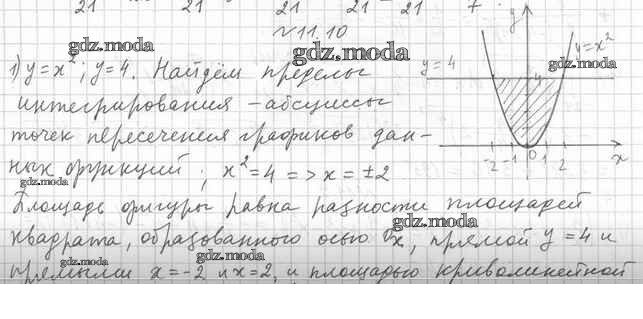 21 21 21 21 21 7
№11.10
1) y=x²; y=4. Найдём пределы
интегрирования – абсциссы
точек пересечения графиков дан-
ных функций; x²=4 => x=±2
Площадь фигуры равна разности площадей
квадрата, образованного осью Ox, прямой y=4 и
прямыми x=-2 и x=2, и площадью криволинейной
y
y=x²
y=4
4
-2 -1 0 1 2 x
gdz.moda
gdz.moda
gdz.moda
gdz.moda
gdz.moda
gdz.moda
gdz.moda